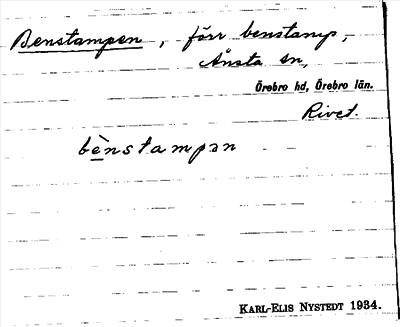 Benstampen, förr benstamp,
Ånsta sn,
Örebro hd, Örebro län.
Rivet.
bènstampən
KARL-ELIS NYSTEDT 1934.